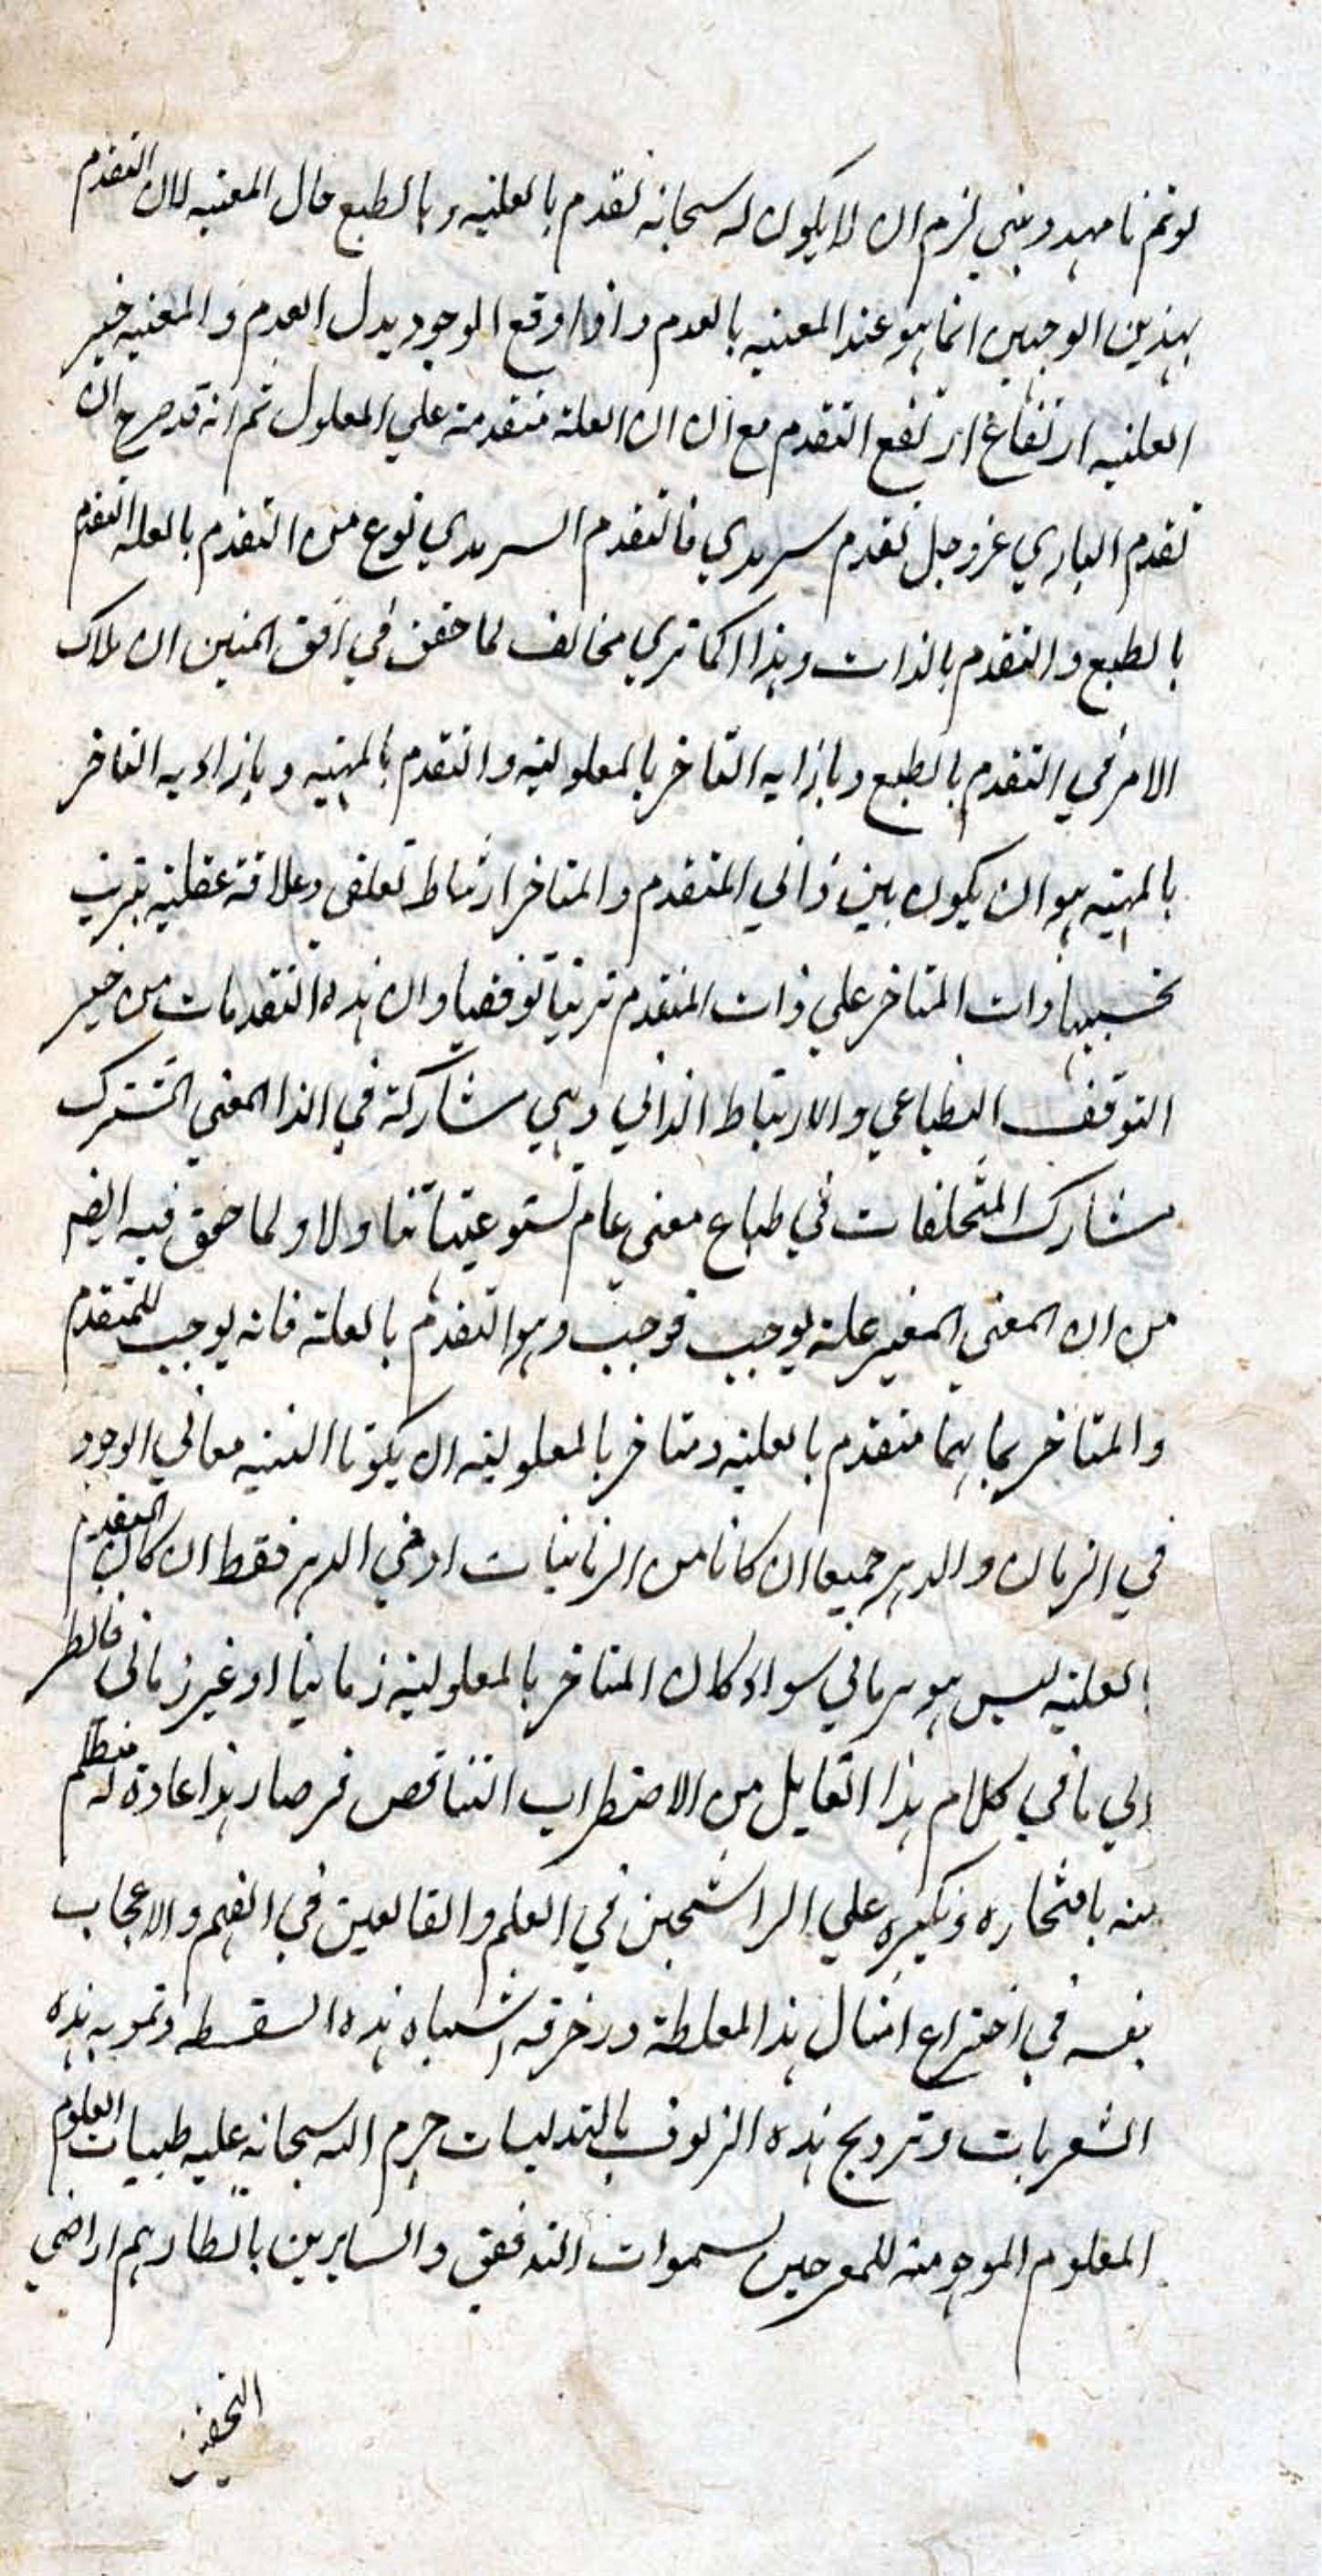 لو تم ما مهد وبني لزم ان لا يكون له سبحانه تقدم بالعلية وبالطبع حال المعية لان التقدم
بهذين الوجهين انما هو عند المعية بالعدم واذا وقع الوجود بدل العدم والمعية حيز
العلية ارتفاع ارتفع التقدم مع ان ان العلة متقدمة علي المعلول ثم انه قد صرح ان
تقدم الباري عز وجل تقدم سرمدي فالتقدم السرمدي نوع من التقدم بالعلة التقدم
بالطبع والتقدم بالذات وهذا كما تري مخالف لما حقق في افق المبين ان ملاك
الامر في التقدم بالطبع وبازايه التاخر بالمعلولية والتقدم بالمهية وبازاءيه التاخر
بالمهية هو ان يكون بين ذاتي المتقدم والمتاخر ارتباط تعلقي وعلاقة عقلية يترتب
بحسبها ذات المتاخر علي ذات المتقدم ترتبا توقفيا وان هذه التقدمات من حيز
التوقف الطباعي والارتباط الذاتي وهي مشاركة في الذا المعني المشترك
مشارك المتخلفات في طباع معني عام تستوعبها تناولا ولما حقق فيه ايضا
من ان المعني المعبر عنه يوجب فوجب وهو التقدم بالعلة فانه يوجب للمتقدم
والمتاخر بما هما متقدم بالعلية ومتاخر بالمعلولية ان يكونا البتة معا في الوجود
في الزمان والدهر جميعا ان كانا من الزمانيات او في الدهر فقط ان كان المتقدم
بالعلية ليس هو بزماني سواء كان المتاخر بالمعلولية زمانيا او غير زماني فانظر
الي ما في كلام هذا القايل من الاضطراب التناقص فرصار هذا عادة له
منه بافتخاره وتكبره علي الراسخين في العلم والقالعين في الفهم والاعجاب
بنفسه في اختراع امثال هذا المغلطة وزخرفة اشباه هذه السفسطه وتمويه هذه
الشعريات وترويج هذه الزيوف بالتدليسات حرم الله سبحانه عليه طيبات العلوم
المعلوم الموهومنه للمعرجين لسموات التدقيق والسايرين باقطارهم اراضي
التحقيق